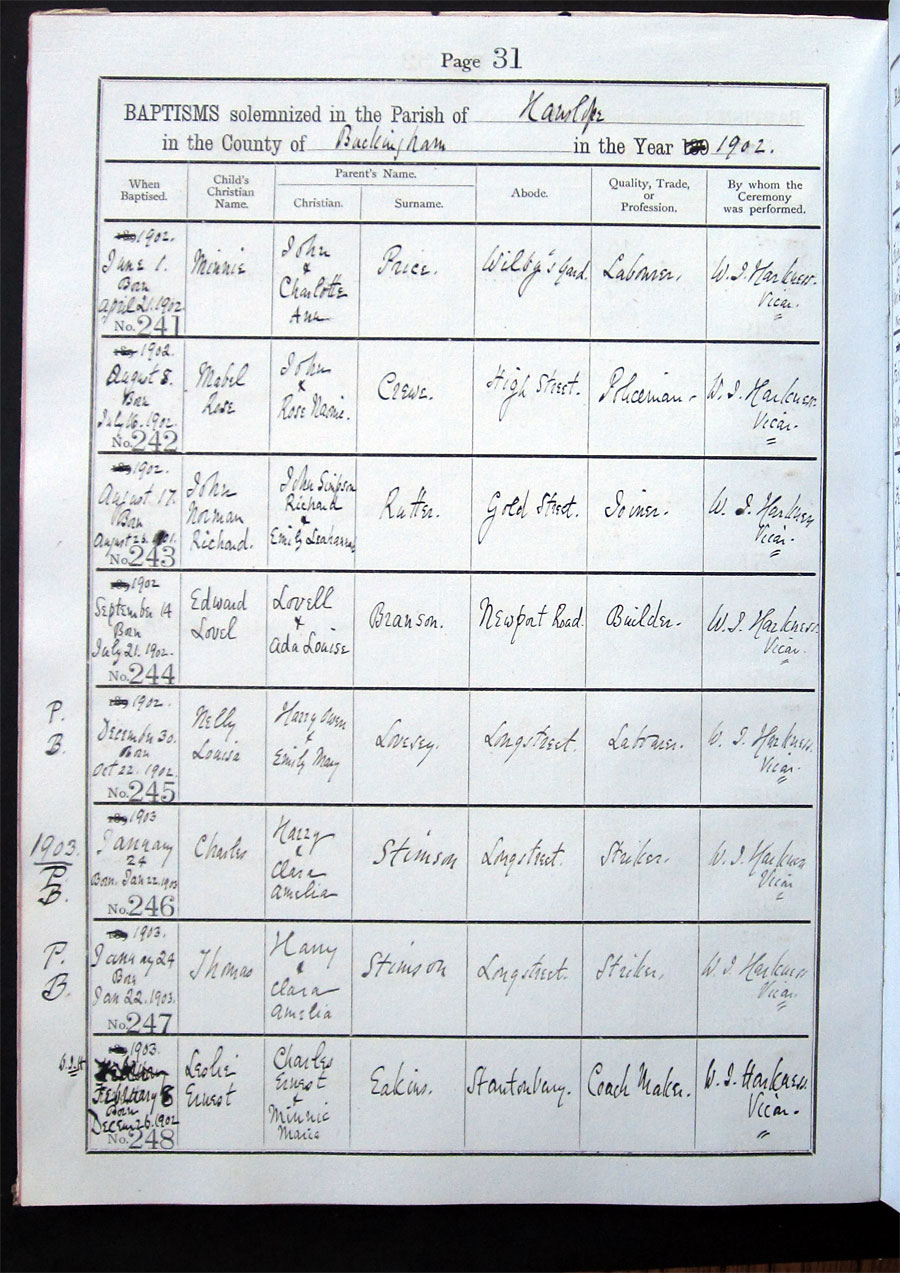 Page 31
BAPTISMS solemnized in the Parish of Hanslope
in the County of Buckingham in the Year 1902.
When Baptised. Child's Christian Name. Parent's Name. Abode. Quality, Trade, or Profession. By whom the Ceremony was performed.
Christian. Surname.
1902.
June 1.
Born
April 21. 1902
No. 241
Minnie
John
&
Charlotte
Ann
Price.
Wilby's Yard.
Labourer.
W. J. Harkness.
Vicar.
1902.
August 8.
Born
July 16. 1902.
No. 242
Mabel
Rose
John
&
Rose Naomi.
Crewe.
High Street.
Policeman.
W. J. Harkness.
Vicar.
1902.
August 17.
Born
August 26.
No. 243
John
Norman
Richard.
John Simpson
Richard
&
Emily
Rutter.
Gold Street.
Joiner.
W. J. Harkness
Vicar.
1902
September 14
Born
July 21. 1902.
No. 244
Edward
Lovel
Lovell
&
Ada Louise
Branson.
Newport Road.
Builder.
W. J. Harkness.
Vicar.
P.
B.
1902.
December 30.
Born
Oct 22. 1902.
No. 245
Nelly
Louisa
Harry Owen
&
Emily Mary
Lovesey.
Longstreet.
Labourer.
W. J. Harkness.
Vicar.
1903.
P.
B.
1903
January
24
Born. Jan 22. 1903
No. 246
Charles
Harry
&
Clara
Amelia
Stimson
Longstreet.
Striker.
W. J. Harkness
Vicar
P.
B.
1903.
January 24
Born
Jan 22. 1903.
No. 247
Thomas
Harry
&
Clara
Amelia
Stimson
Longstreet.
Striker.
W. J. Harkness
Vicar
1903.
February 8
Born
Decem 26. 1902
No. 248
Leslie
Ernest
Charles
Ernest
&
Minnie
Maria
Eakins.
Stantonbury.
Coach Maker.
W. J. Harkness
Vicar.